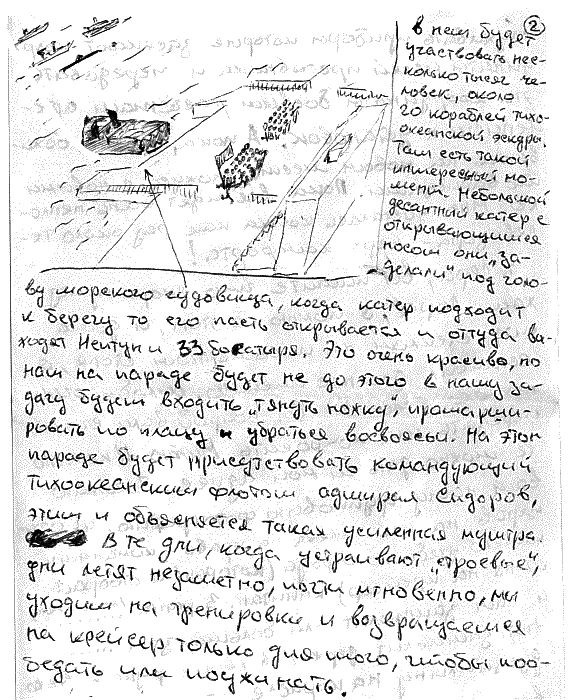 2
в нем будет
участвовать нес-
колько тысяч че-
ловек, около
го кораблей тихо-
океанской эскдры.
Там есть такой
интересный мо-
мент. Небольшой
десантный катер с
открывающимся
носом они „за-
делали" под голо-
ву морского чудовища, когда катер подходит
к берегу то его пасть открывается и оттуда вы-
ходят Нептун и 33 богатыря. Это очень красиво, но
нам на параде будет не до этого в нашу за-
дачу будем входить „тянуть ножку", промарши-
ровать по плацу и убраться восвояси. На этом
параде будет присутствовать командующий
Тихоокеанским флотом адмирал Сидоров,
этим и объясняется такая усиленная муштра.
В те дни, когда устраивают „строевые",
дни летят незаметно, почти мгновенно, мы
уходим на тренировки и возвращаемся
на крейсер только для того, чтобы поо-
бедать или поужинать.